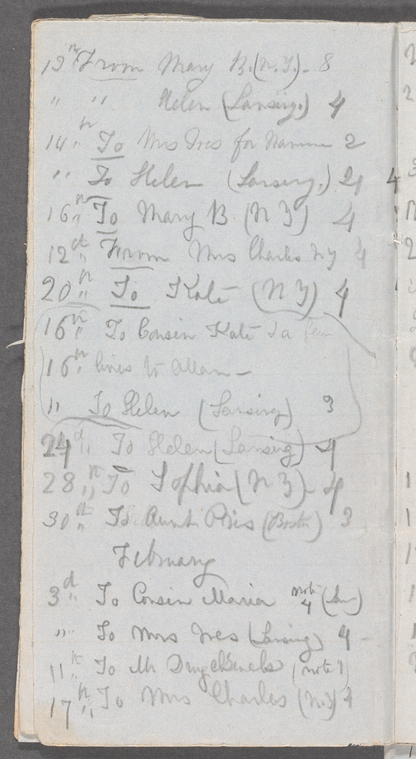 13th From Mary B. (N.Y.) - 8
" " Helen (Lansing.) 4
14th To Mrs Ives for 2
" To Helen (Lansing.) 4
16th To Mary B (N Y) 4
12th From Mrs Charles NY 4
20th To Kate (N Y) 4
16th To Cousin Kate
16th lines to Allam -
" To Helen (Lansing) 3
24th To Helen (Lansing) 4
28th To Sophia (N Y) - 4
30th To Aunt (Booth) 3
February
3d To Cousin Maria note 4
" To Mrs Ives (Lansing) 4 -
11th To Mr (note 1)
17th To Mrs Charles (N.Y) 4